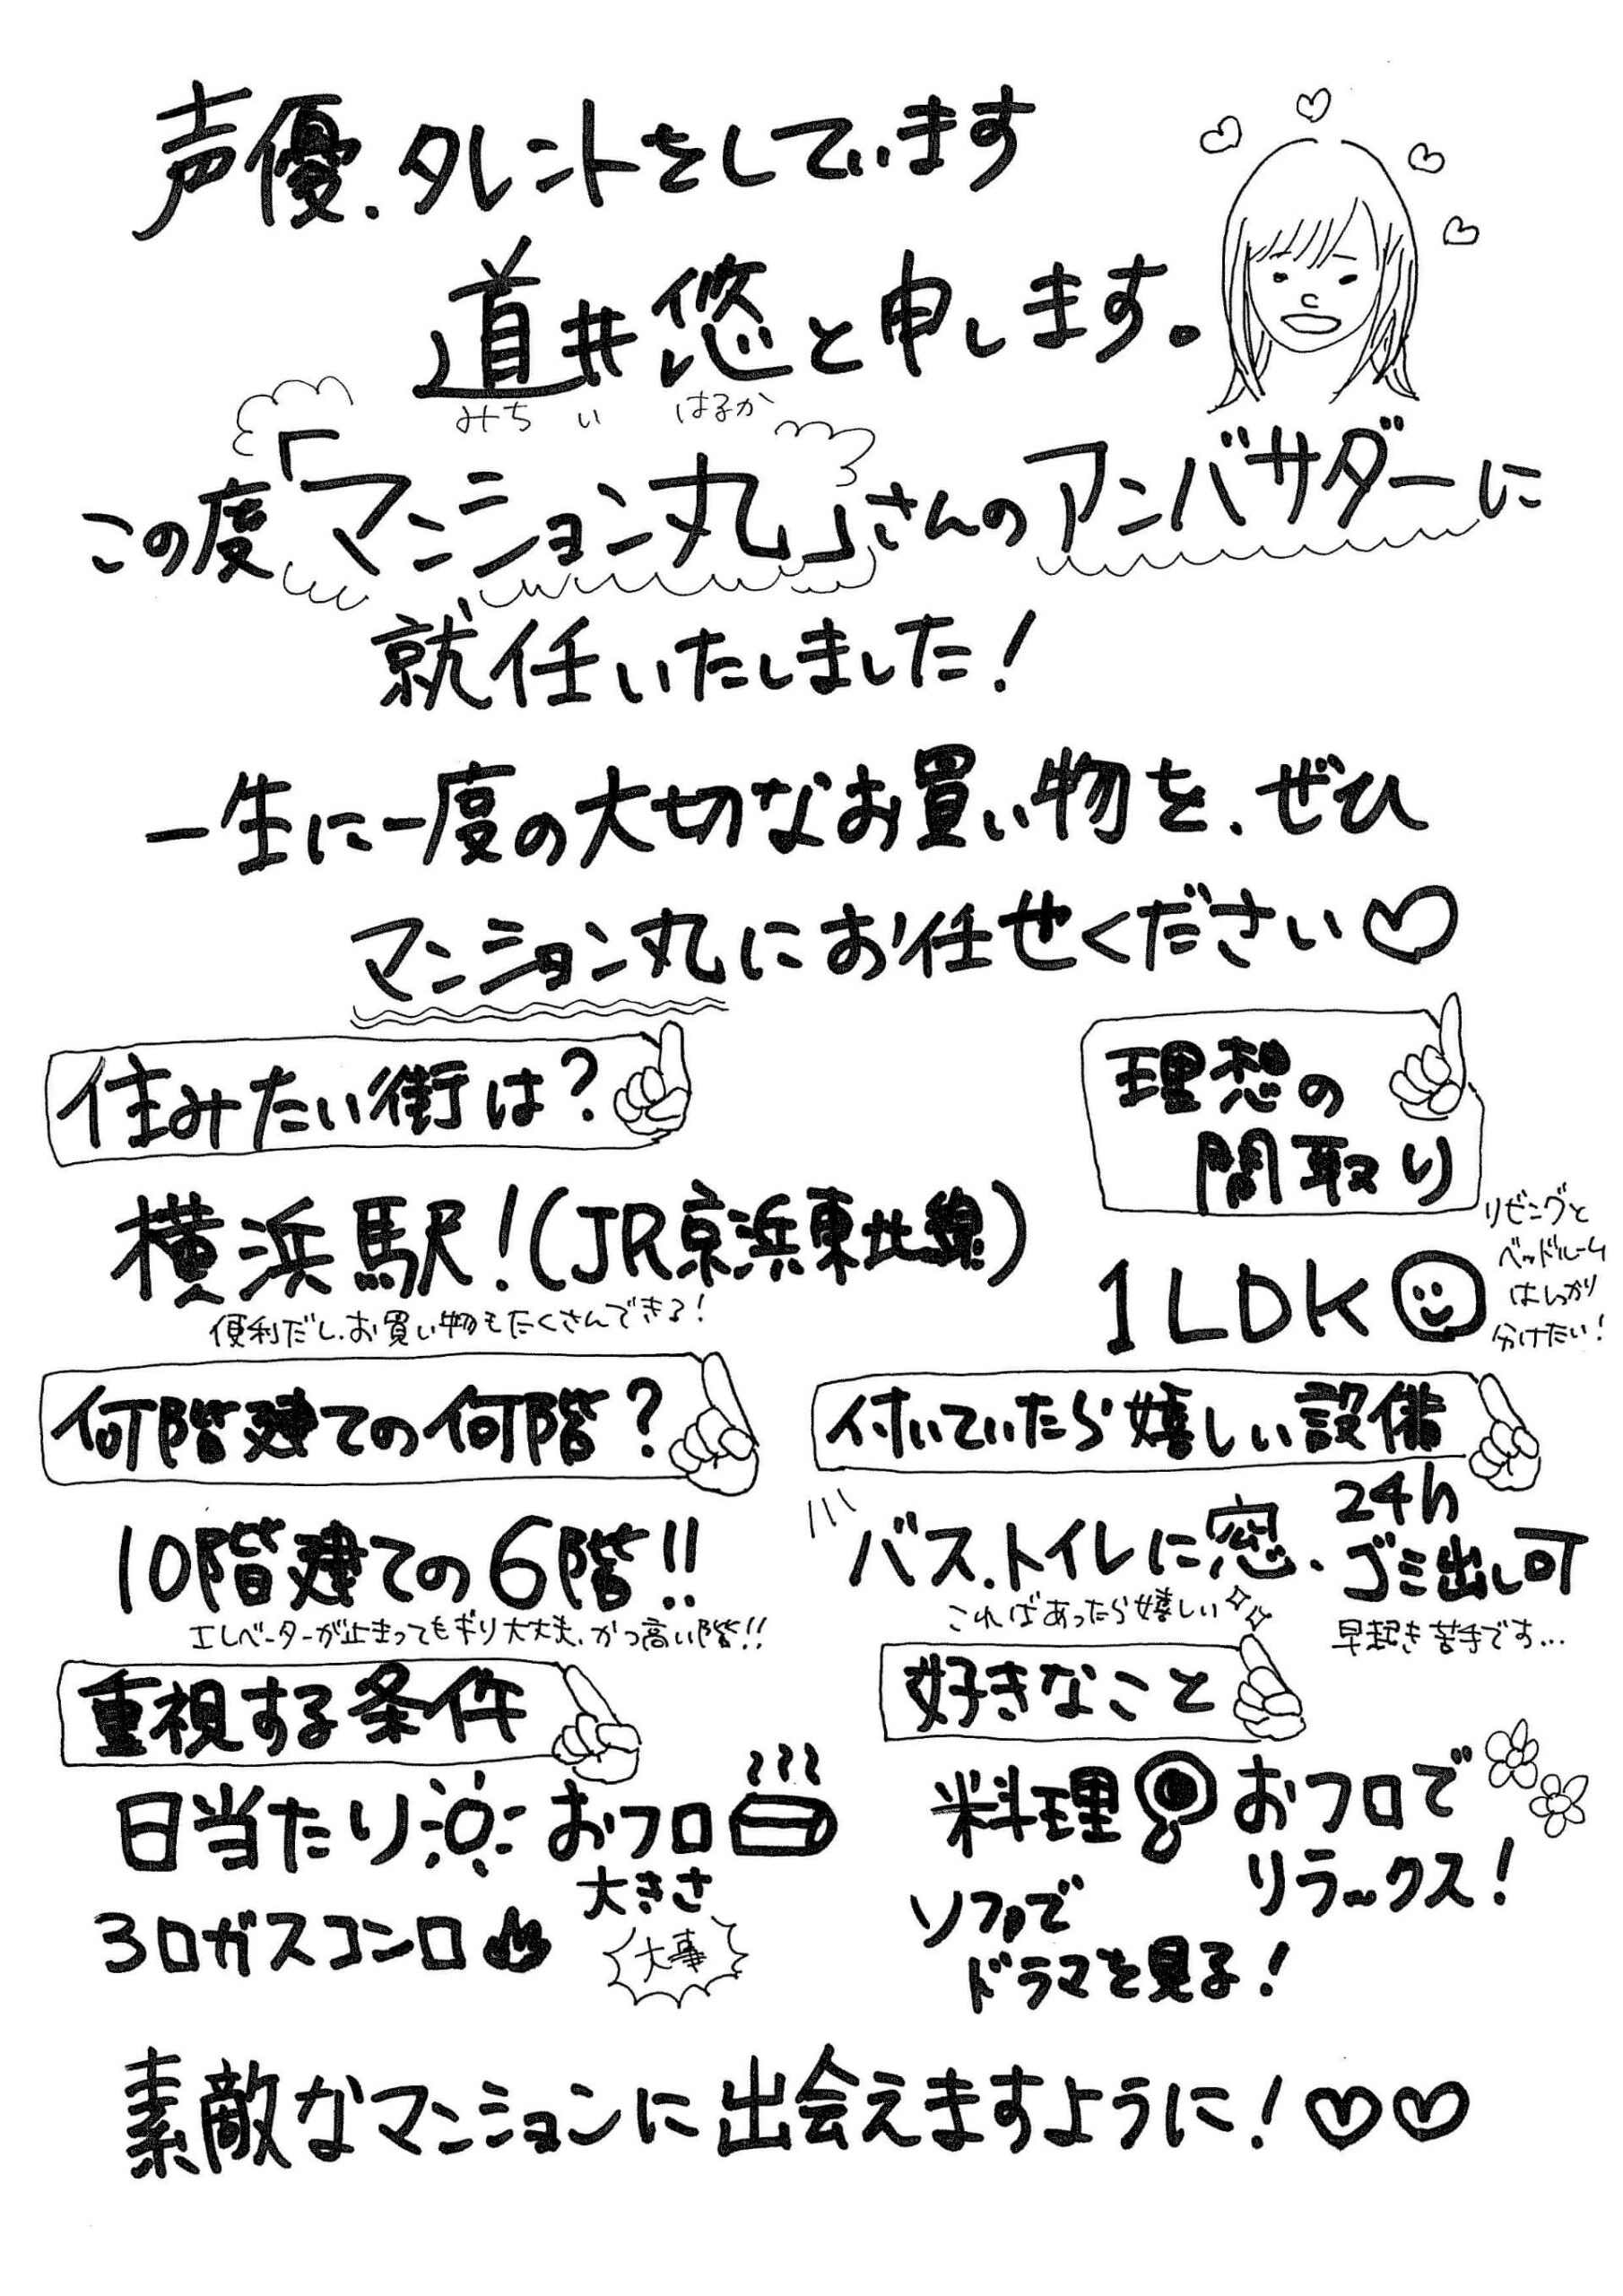 声優、タレントをしています
道井悠と申します。
みちい はるか
この度「マンション丸」さんのアンバサダーに
就任いたしました!
一生に一度の大切なお買い物を、ぜひ
マンション丸にお任せください♡
住みたい街は?
横浜駅!(JR京浜東北線)
便利だし、お買い物もたくさんできる!
理想の
間取り
1LDK
リビングと
ベッドルーム
はしっかり
分けたい!
何階建ての何階?
10階建ての6階!!
エレベーターが止まってもギリ大丈夫、かつ高い階!!
付いていたら嬉しい設備
バス、トイレに窓、
こればあったら嬉しい
24h
ゴミ出し可
早起き苦手です...
重視する条件
日当たり おフロ
大きさ
大事
3口ガスコンロ
好きなこと
料理 おフロで
リラックス!
ソファで
ドラマを見る!
素敵なマンションに出会えますように!♡♡